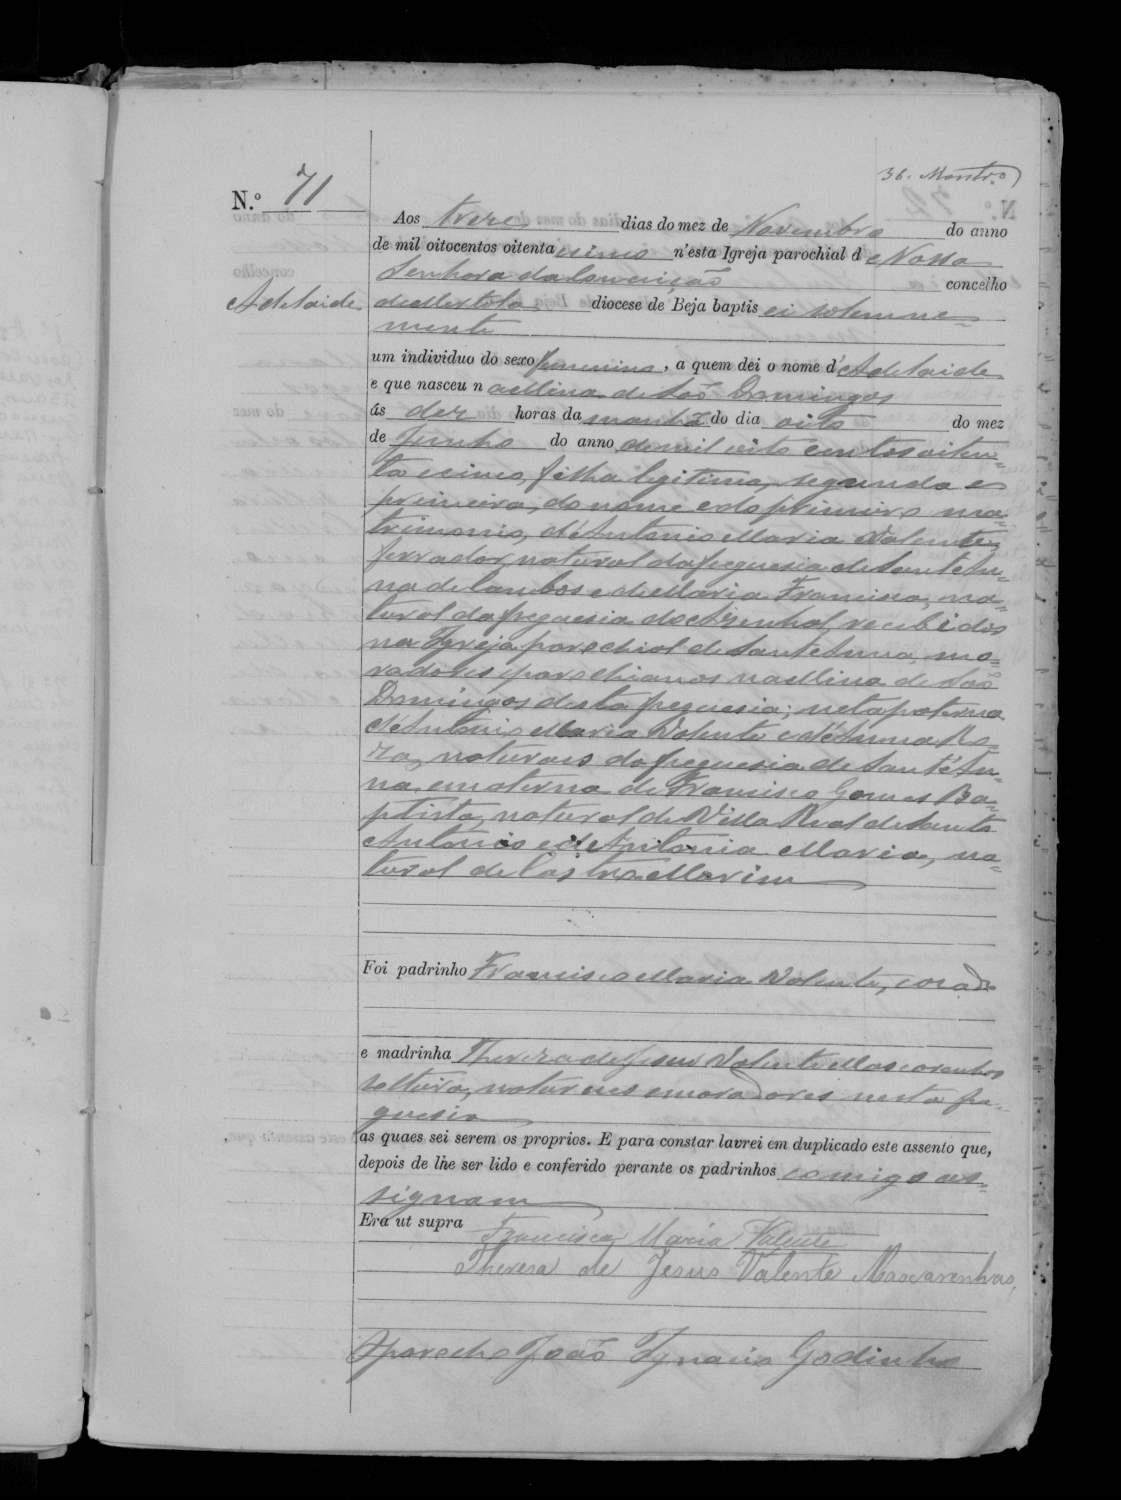 36. Montr.º
N.º 71
Aos treze dias do mez de Novembro do anno
de mil oitocentos oitenta e cinco n'esta Igreja parochial de Nossa
Senhora da Conceição concelho
Adelaide
de Mertola diocese de Beja baptisei solemne-
mente
um individuo do sexo femenino, a quem dei o nome d'Adelaide
e que nasceu na Mina de São Domingos
ás dez horas da manhã do dia oito do mez
de Junho do anno de mil oito centos oiten-
ta e cinco, filha legitima, segunda e
primeira, do nome e do primeiro ma-
trimonio, d'Antonio Maria Valente,
ferrador, natural da freguesia de Sant'An-
na de Cambas e de Maria Francisca, na-
tural da freguesia do Azinhal, recebidos
na Igreja parochial de Sant'Anna, mo-
radores e parochianos na Mina de São
Domingos desta freguesia; neta paterna
d'Antonio Maria Valente e d'Anna Ro-
za, naturaes da freguesia de Sant'An-
na, e materna de Francisco Gomes Ba-
ptista, natural de Villa Real de Santo
Antonio e d'Antonia Maria, na-
tural de Castro Marim
Foi padrinho Francisco Maria Valente, casado
e madrinha Thereza de Jesus Valente Mascarenhas
solteira, naturaes e moradores nesta fre-
guesia
as quaes sei serem os proprios. E para constar lavrei em duplicado este assento que,
depois de lhe ser lido e conferido perante os padrinhos comigo as-
signam
Era ut supra
Francisco Maria Valente
Theresa de Jesus Valente Mascarenhas,
O parocho João Ignacio Godinho